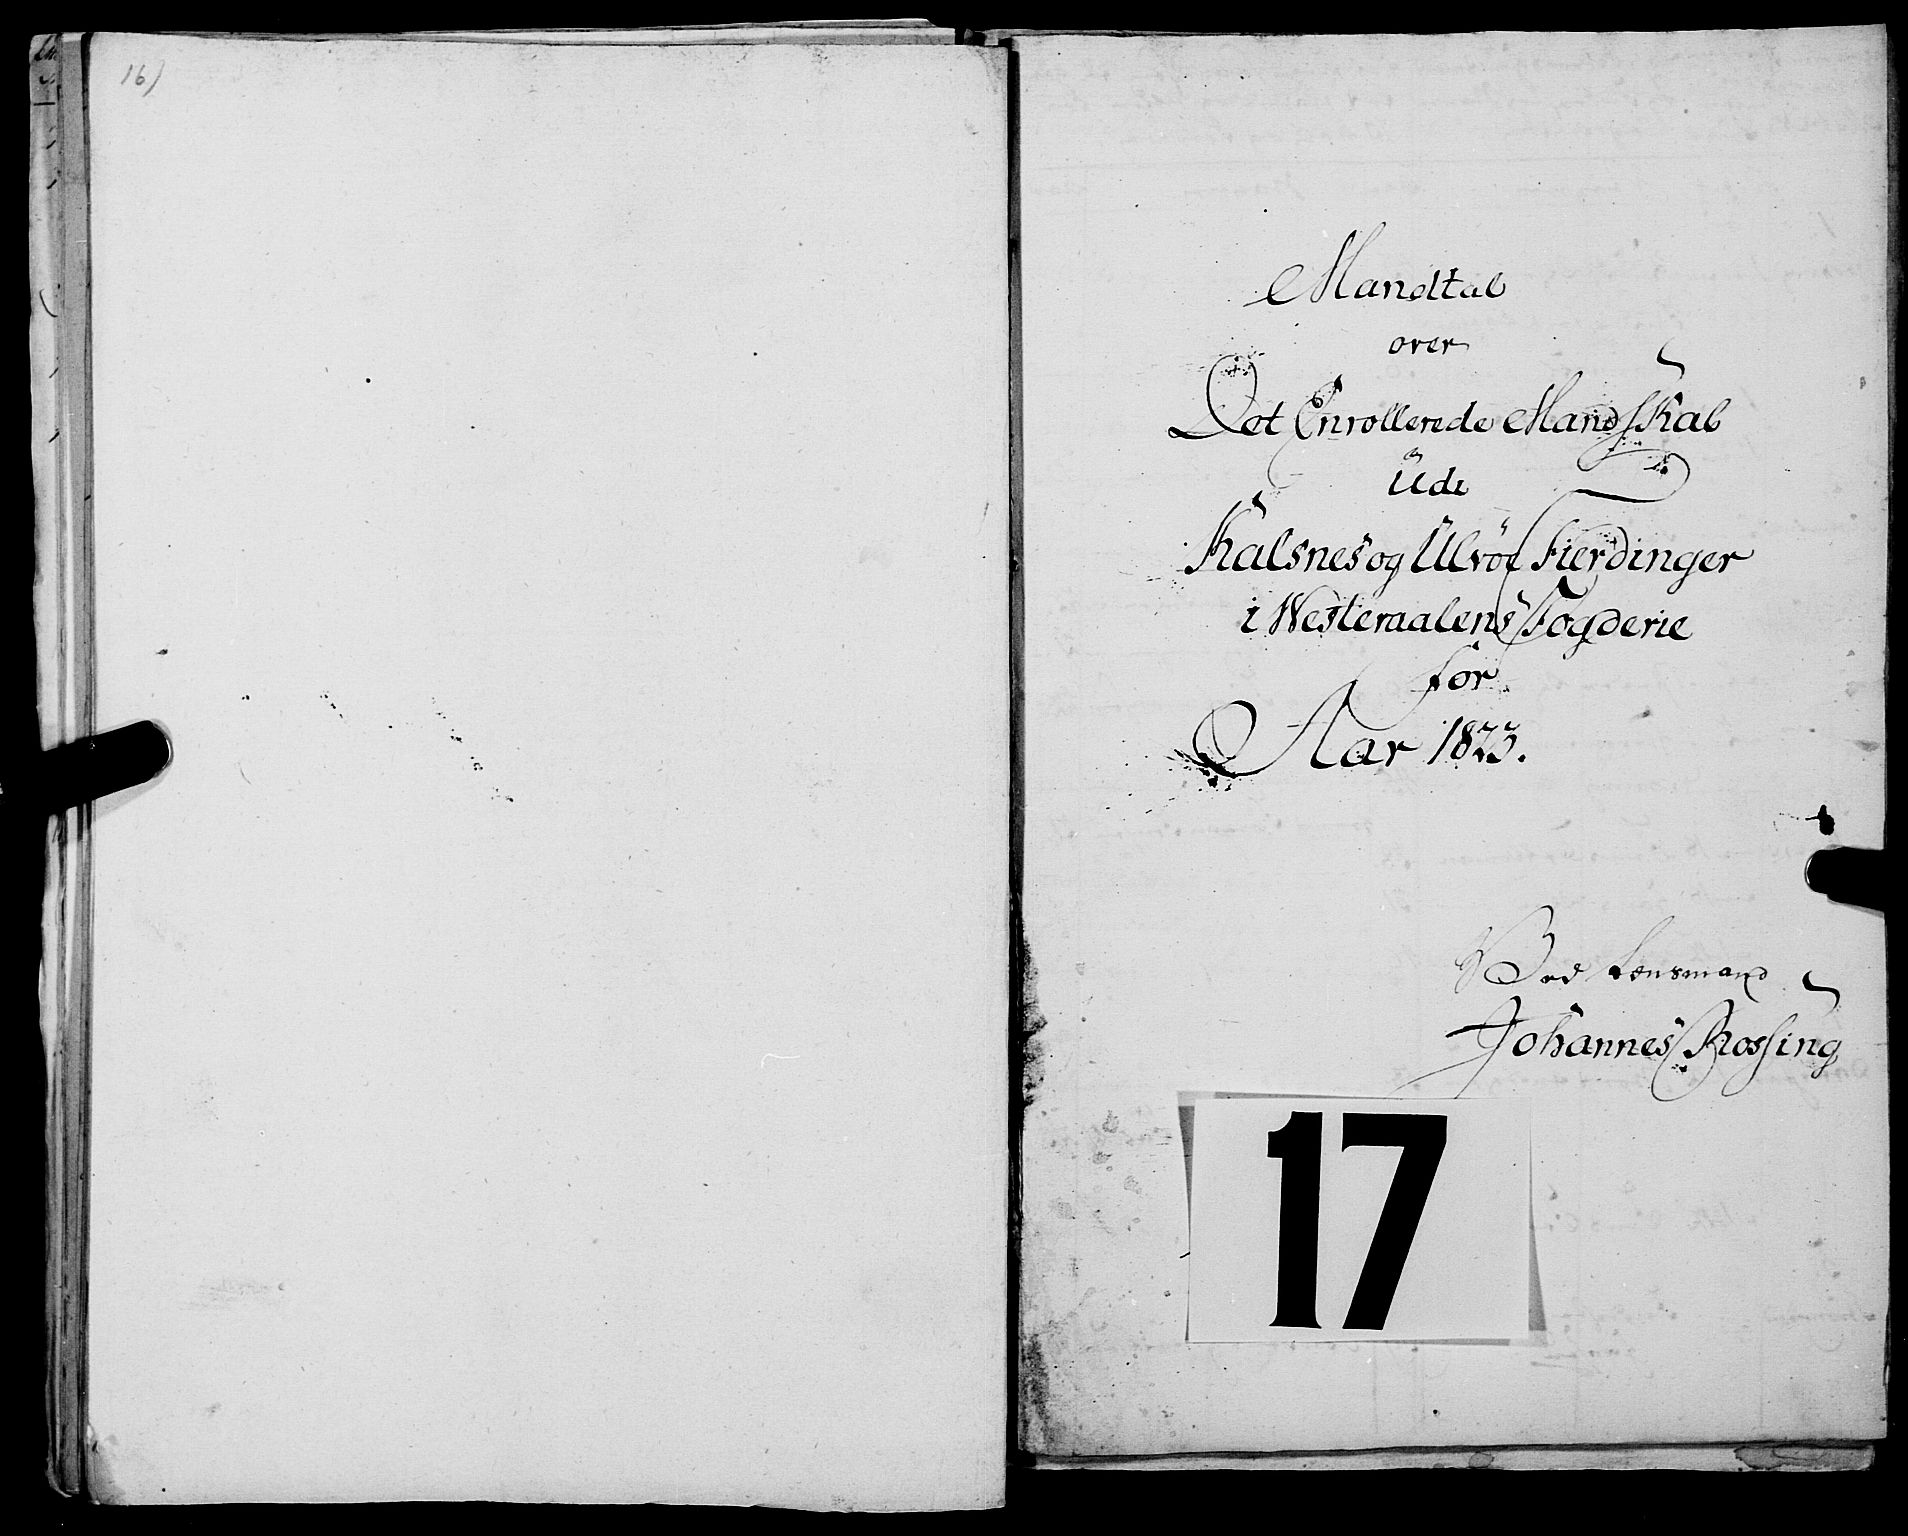 16)
Mandtal
over
Det Enrollerede Mandskab
Ude
Kalsnes og Ulvøe Fierdinger
i Westeraalens Fogderie
for
Aar 1823.
Ved Lensmand
Johannes Rossing
17